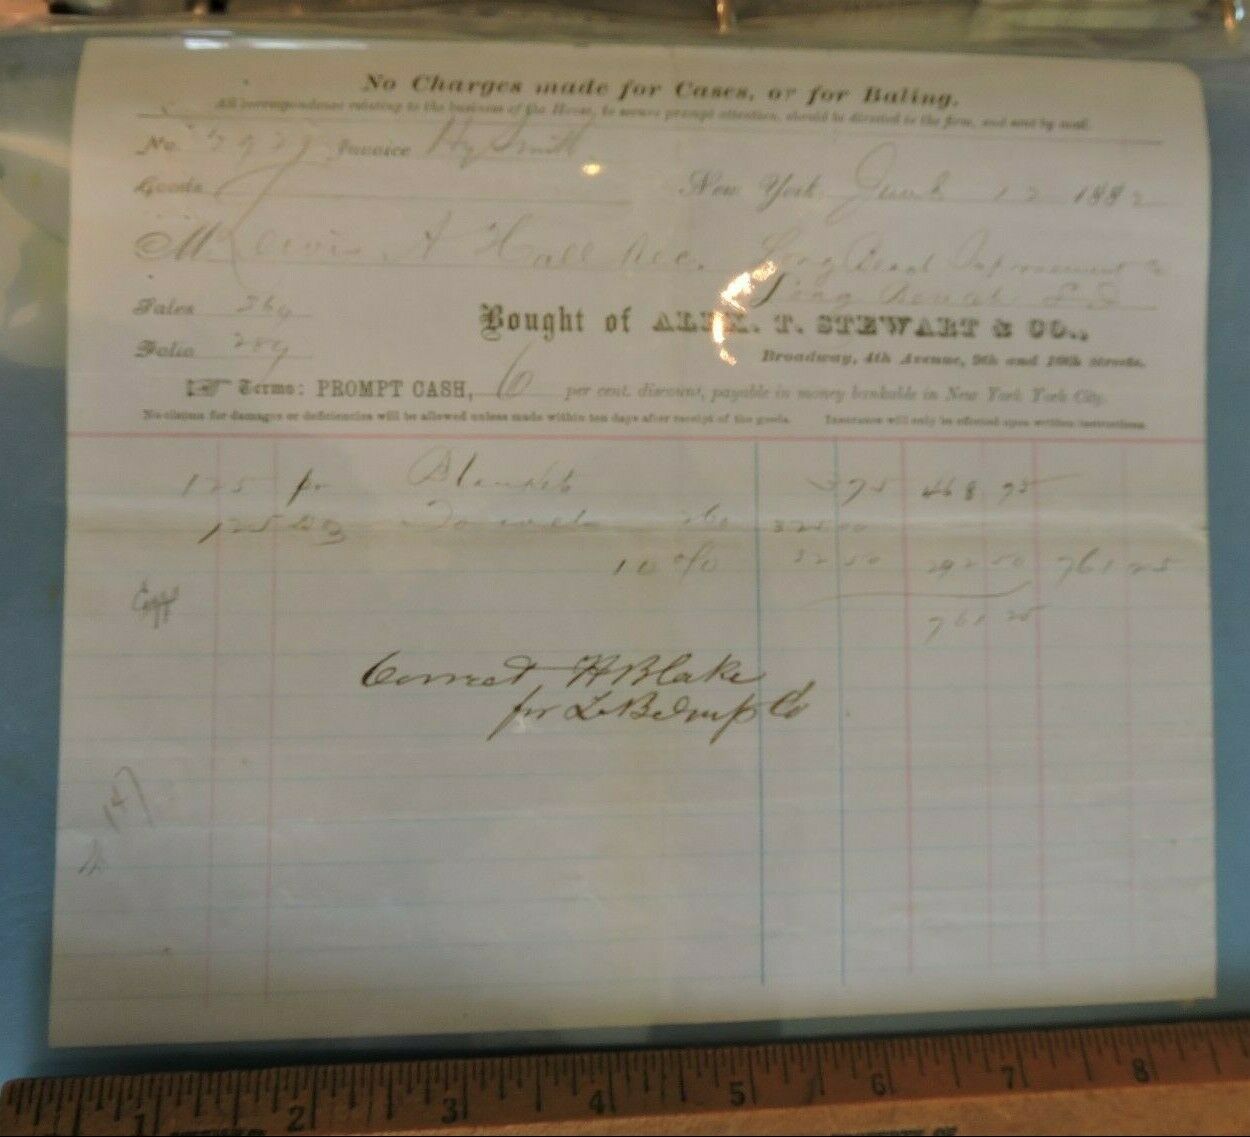 No Charges made for Cases, or for Baling.
All correspondence relating to the business of the House, to secure prompt attention, should be directed to the firm, and sent by mail.
No. Invoice Hy Smith
Goods
New York, 12 1882
M Lewis A Hall Rec. Long Beach Improvement Co
Long Beach L I
Sales 369
Bought of ALEX. T. STEWART & CO.,
Folio 289
Broadway, 4th Avenue, 9th and 10th Streets.
Terms: PROMPT CASH, 6 per cent. discount, payable in money bankable in New York York City.
No claims for damages or deficiencies will be allowed unless made within ten days after receipt of the goods. Insurance will only be effected upon written instructions.
125 pr Blankets 3 75 468 75
125 Dz 260 325 00
10 % 32 50 292 50 761 25
761 25
Correct H Blake
for L B Imp Co
1 2 3 4 5 6 7 8